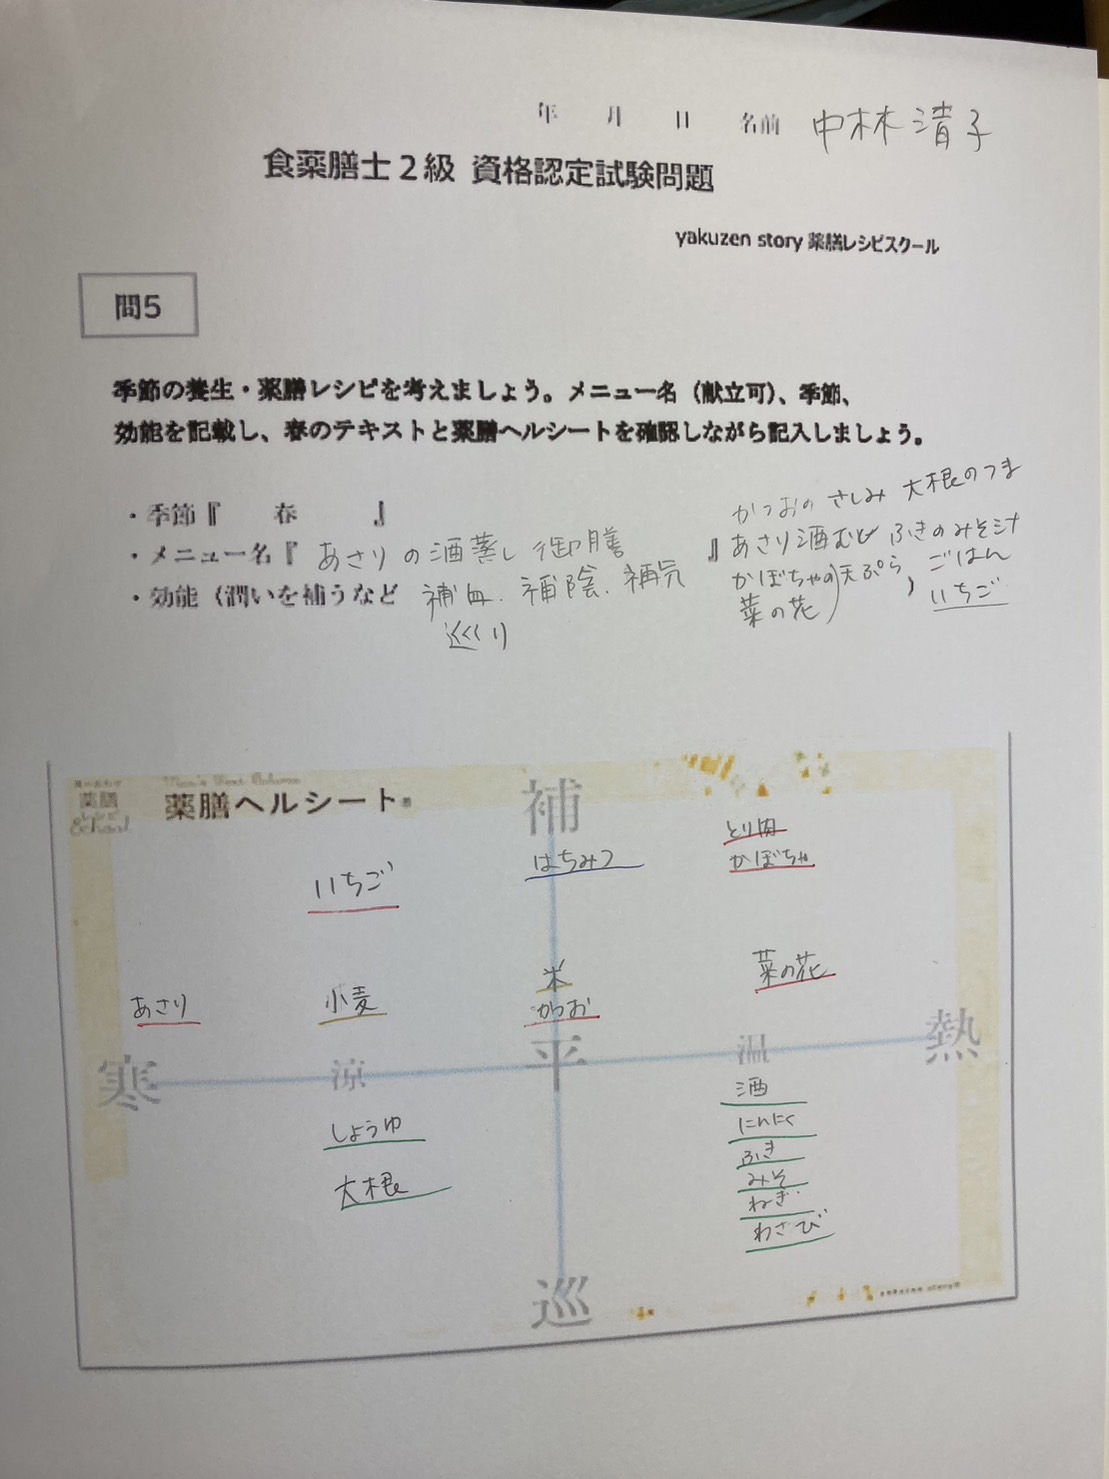 年 月 日 名前 中林清子
食薬膳士2級 資格認定試験問題
yakuzen story 薬膳レシピスクール
問5
季節の養生・薬膳レシピを考えましょう。メニュー名（献立可）、季節、
効能を記載し、春のテキストと薬膳ヘルシートを確認しながら記入しましょう。
・季節『 春 』
・メニュー名『 あさりの酒蒸し御膳 』
・効能（潤いを補うなど 補血、補陰、補気
巡り
かつおのさしみ 大根のつま
あさり酒むし ふきのみそ汁
かぼちゃの天ぷら、ごはん
菜の花) いちご
薬膳
School
薬膳ヘルシート
補
とり肉
はちみつ
かぼちゃ
いちご
菜の花
米
あさり 小麦 かつお
寒 涼 平 温 熱
酒
しょうゆ にんにく
ふき
大根 みそ
ねぎ
わさび
巡
yakuzen story